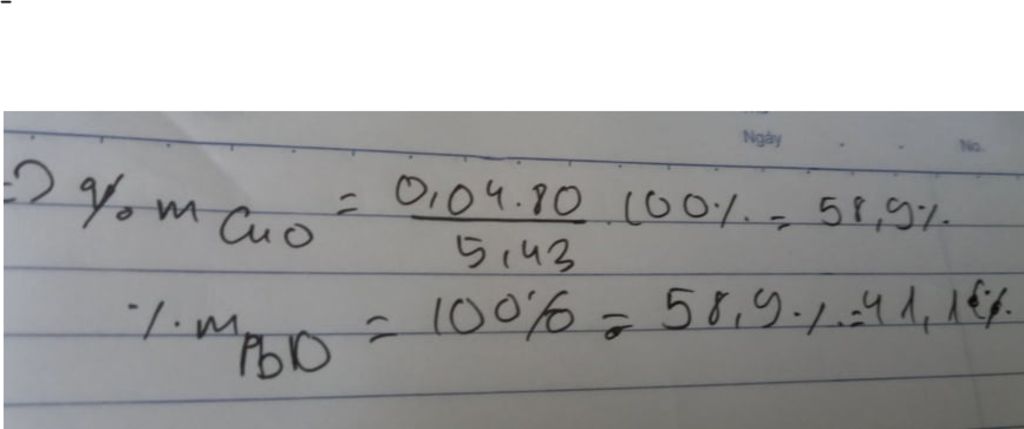 Ngày . . No.
=> % m CuO = 0,04.80 / 5,43 . 100% = 58,9%
% m PbO = 100% - 58,9% = 41,1%